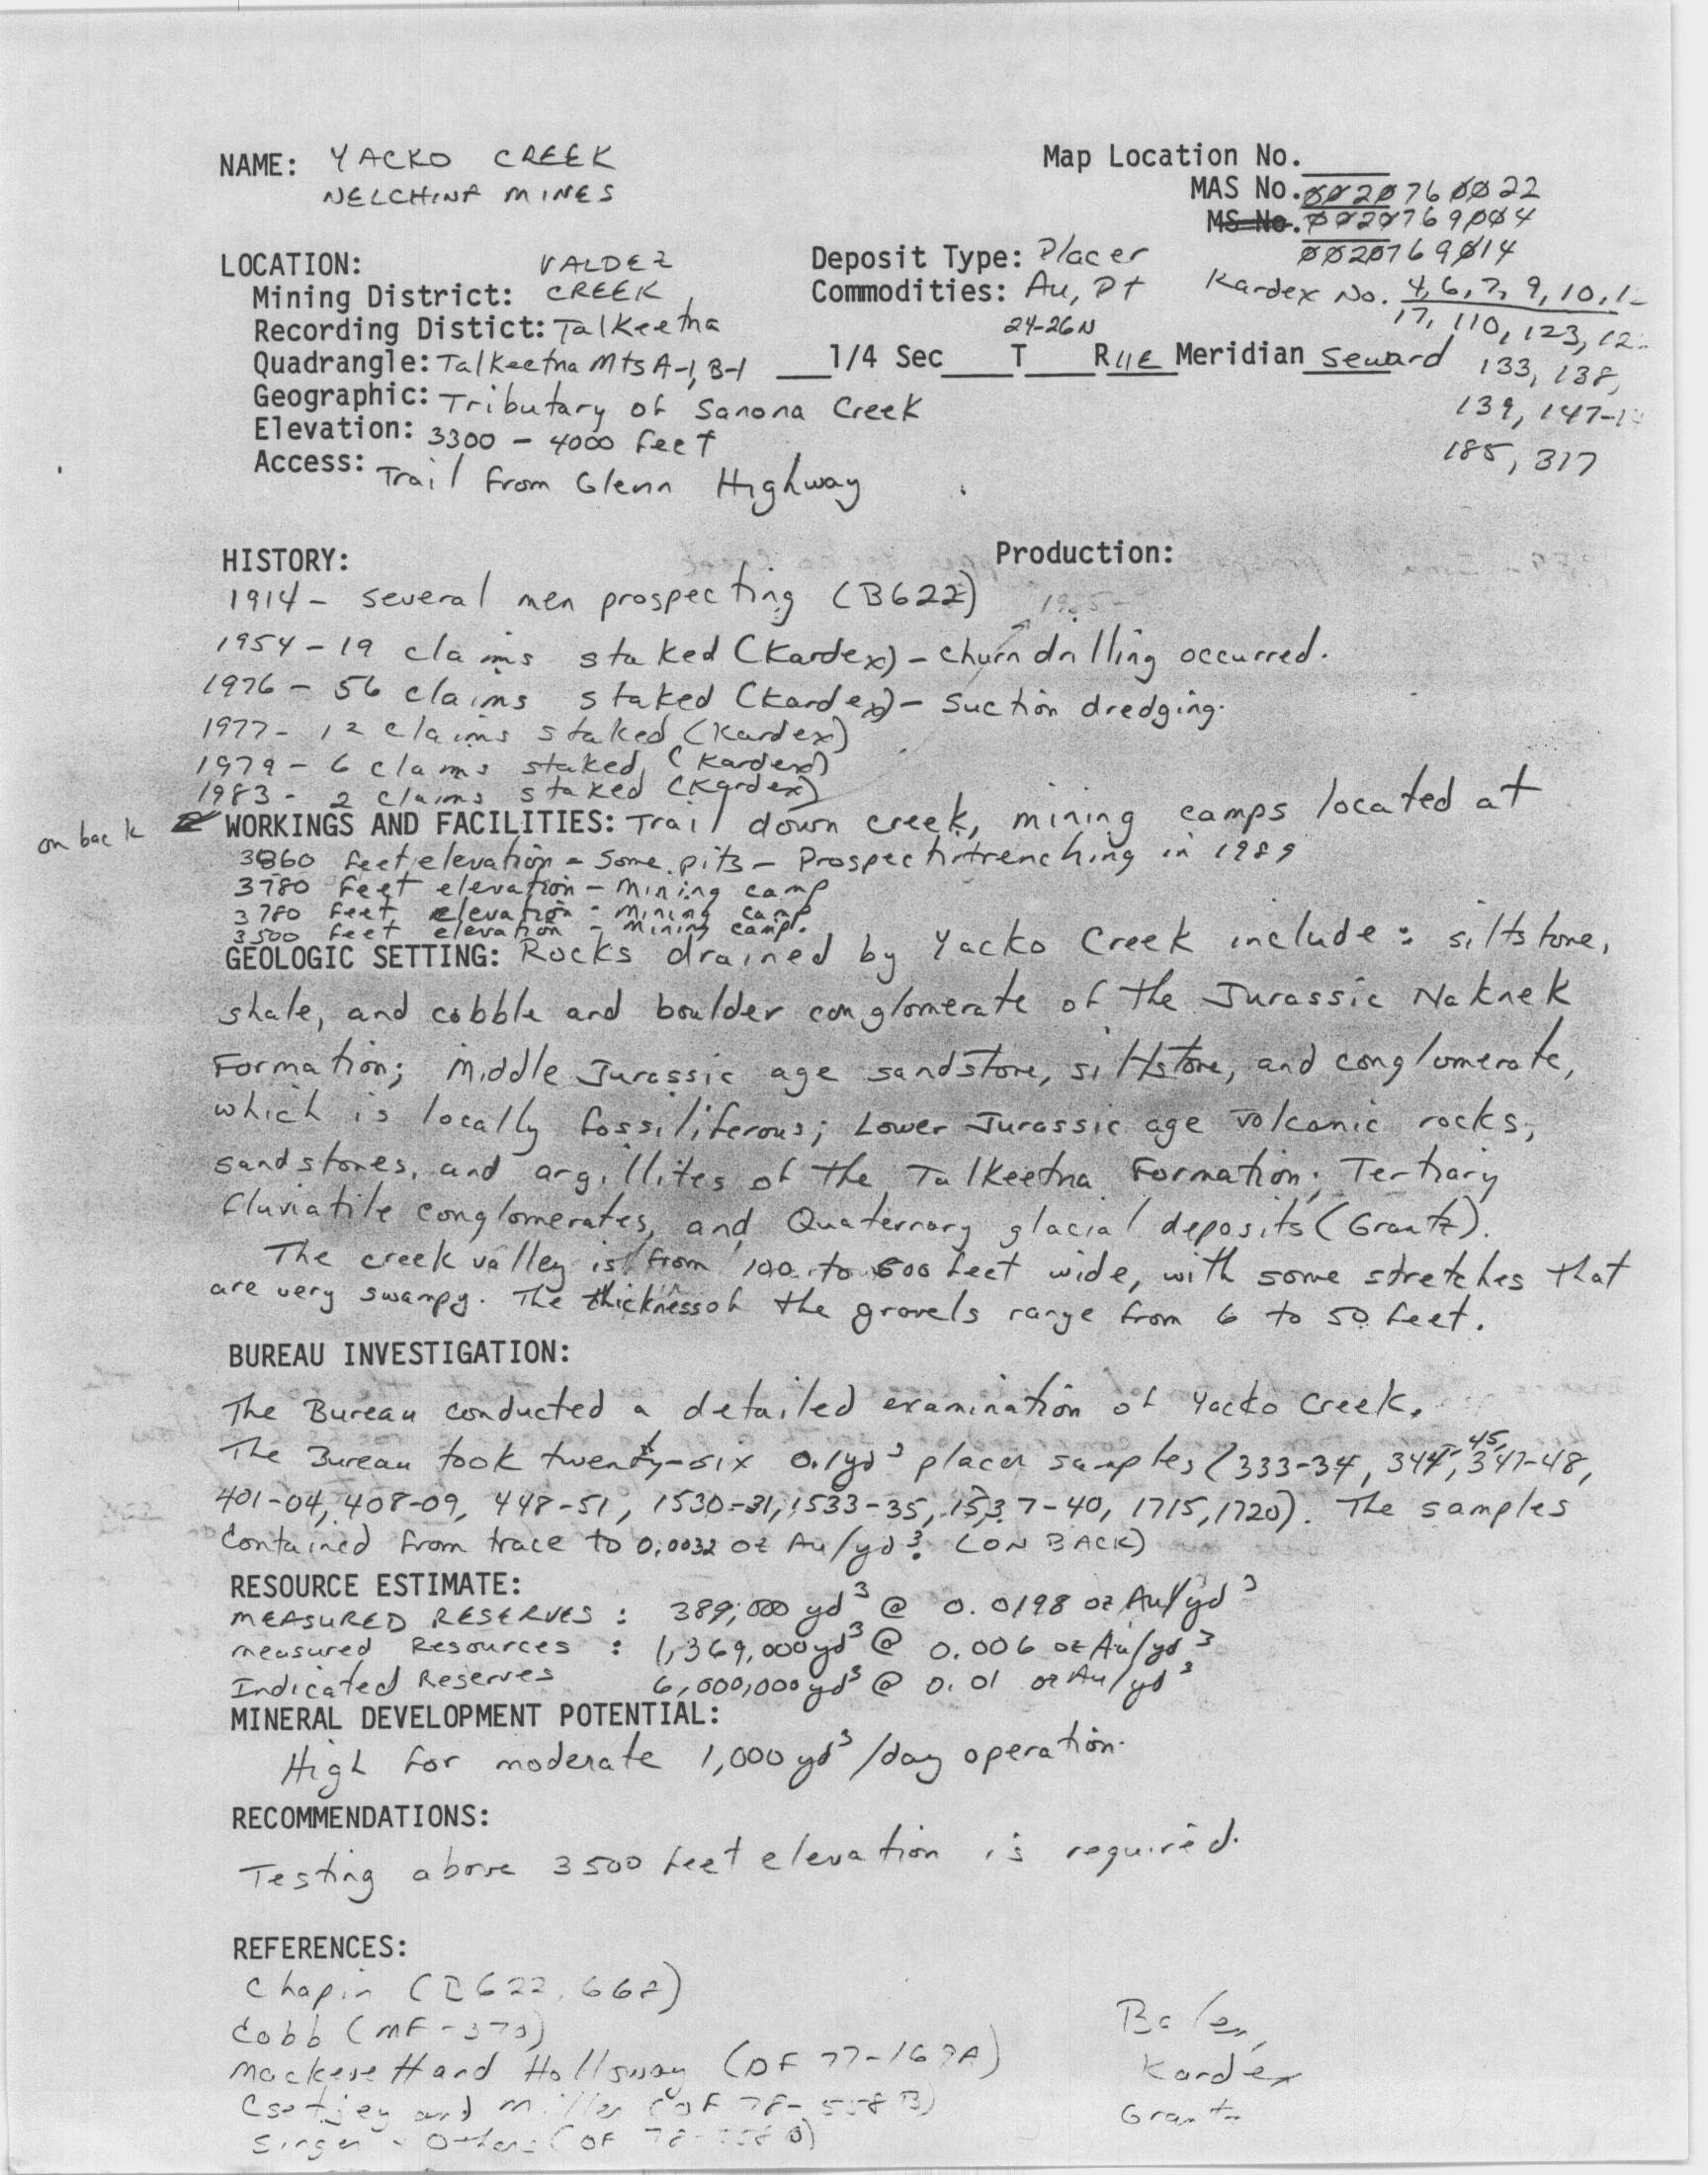 NAME: YACKO CREEK
NELCHINA MINES
Map Location No.
MAS No. 0020760022
MS No. 0020769004
0020769014
LOCATION: VALDEZ
Mining District: CREEK
Recording Distict: Talkeetna
Quadrangle: Talkeetna Mts A-1, B-1
Geographic: Tributary of Sanona Creek
Elevation: 3300 - 4000 feet
Access: Trail from Glenn Highway
Deposit Type: Placer
Commodities: Au, Pt
24-26N
1/4 Sec T R11E Meridian Seward
Kardex No. 4, 6, 7, 9, 10, 1
17, 110, 123, 12
133, 138,
139, 147-1
185, 317
HISTORY: Production:
1914 - several men prospecting (B622)
1954 - 19 claims staked (Kardex) - churn drilling occurred.
1976 - 56 claims staked (Kardex) - Suction dredging.
1977 - 12 claims staked (Kardex)
1979 - 6 claims staked (Kardex)
1983 - 2 claims staked (Kardex)
on back
WORKINGS AND FACILITIES: Trail down creek, mining camps located at
3860 feet elevation - some pits - Prospect trenching in 1989
3780 feet elevation - mining camp
3780 feet elevation - mining camp
3500 feet elevation - mining camp.
GEOLOGIC SETTING: Rocks drained by Yacko Creek include: siltstone,
shale, and cobble and boulder conglomerate of the Jurassic Naknek
Formation; Middle Jurassic age sandstone, siltstone, and conglomerate,
which is locally fossiliferous; Lower Jurassic age volcanic rocks,
sandstones, and argillites of the Talkeetna Formation; Tertiary
fluviatile conglomerates, and Quaternary glacial deposits (Grantz).
The creek valley is from 100 to 600 feet wide, with some stretches that
are very swampy. The thickness of the gravels range from 6 to 50 feet.
BUREAU INVESTIGATION:
The Bureau conducted a detailed examination of Yacko Creek.
The Bureau took twenty-six 0.1yd³ placer samples (333-34, 344-45, 347-48,
401-04, 408-09, 448-51, 1530-31, 1533-35, 1537-40, 1715, 1720). The samples
contained from trace to 0.0032 oz Au/yd³. (ON BACK)
RESOURCE ESTIMATE:
MEASURED RESERVES: 389,000 yd³ @ 0.0198 oz Au/yd³
measured Resources: 1,369,000 yd³ @ 0.006 oz Au/yd³
Indicated Reserves 6,000,000 yd³ @ 0.01 oz Au/yd³
MINERAL DEVELOPMENT POTENTIAL:
High for moderate 1,000 yd³/day operation.
RECOMMENDATIONS:
Testing above 3500 feet elevation is required.
REFERENCES:
Chapin (B622, 668)
Cobb (MF-370)
Mackevett and Holloway (OF 77-169A)
Csejtey and Miller (OF 78-558B)
Singer Others (OF 78-558)
Kardex
Grantz